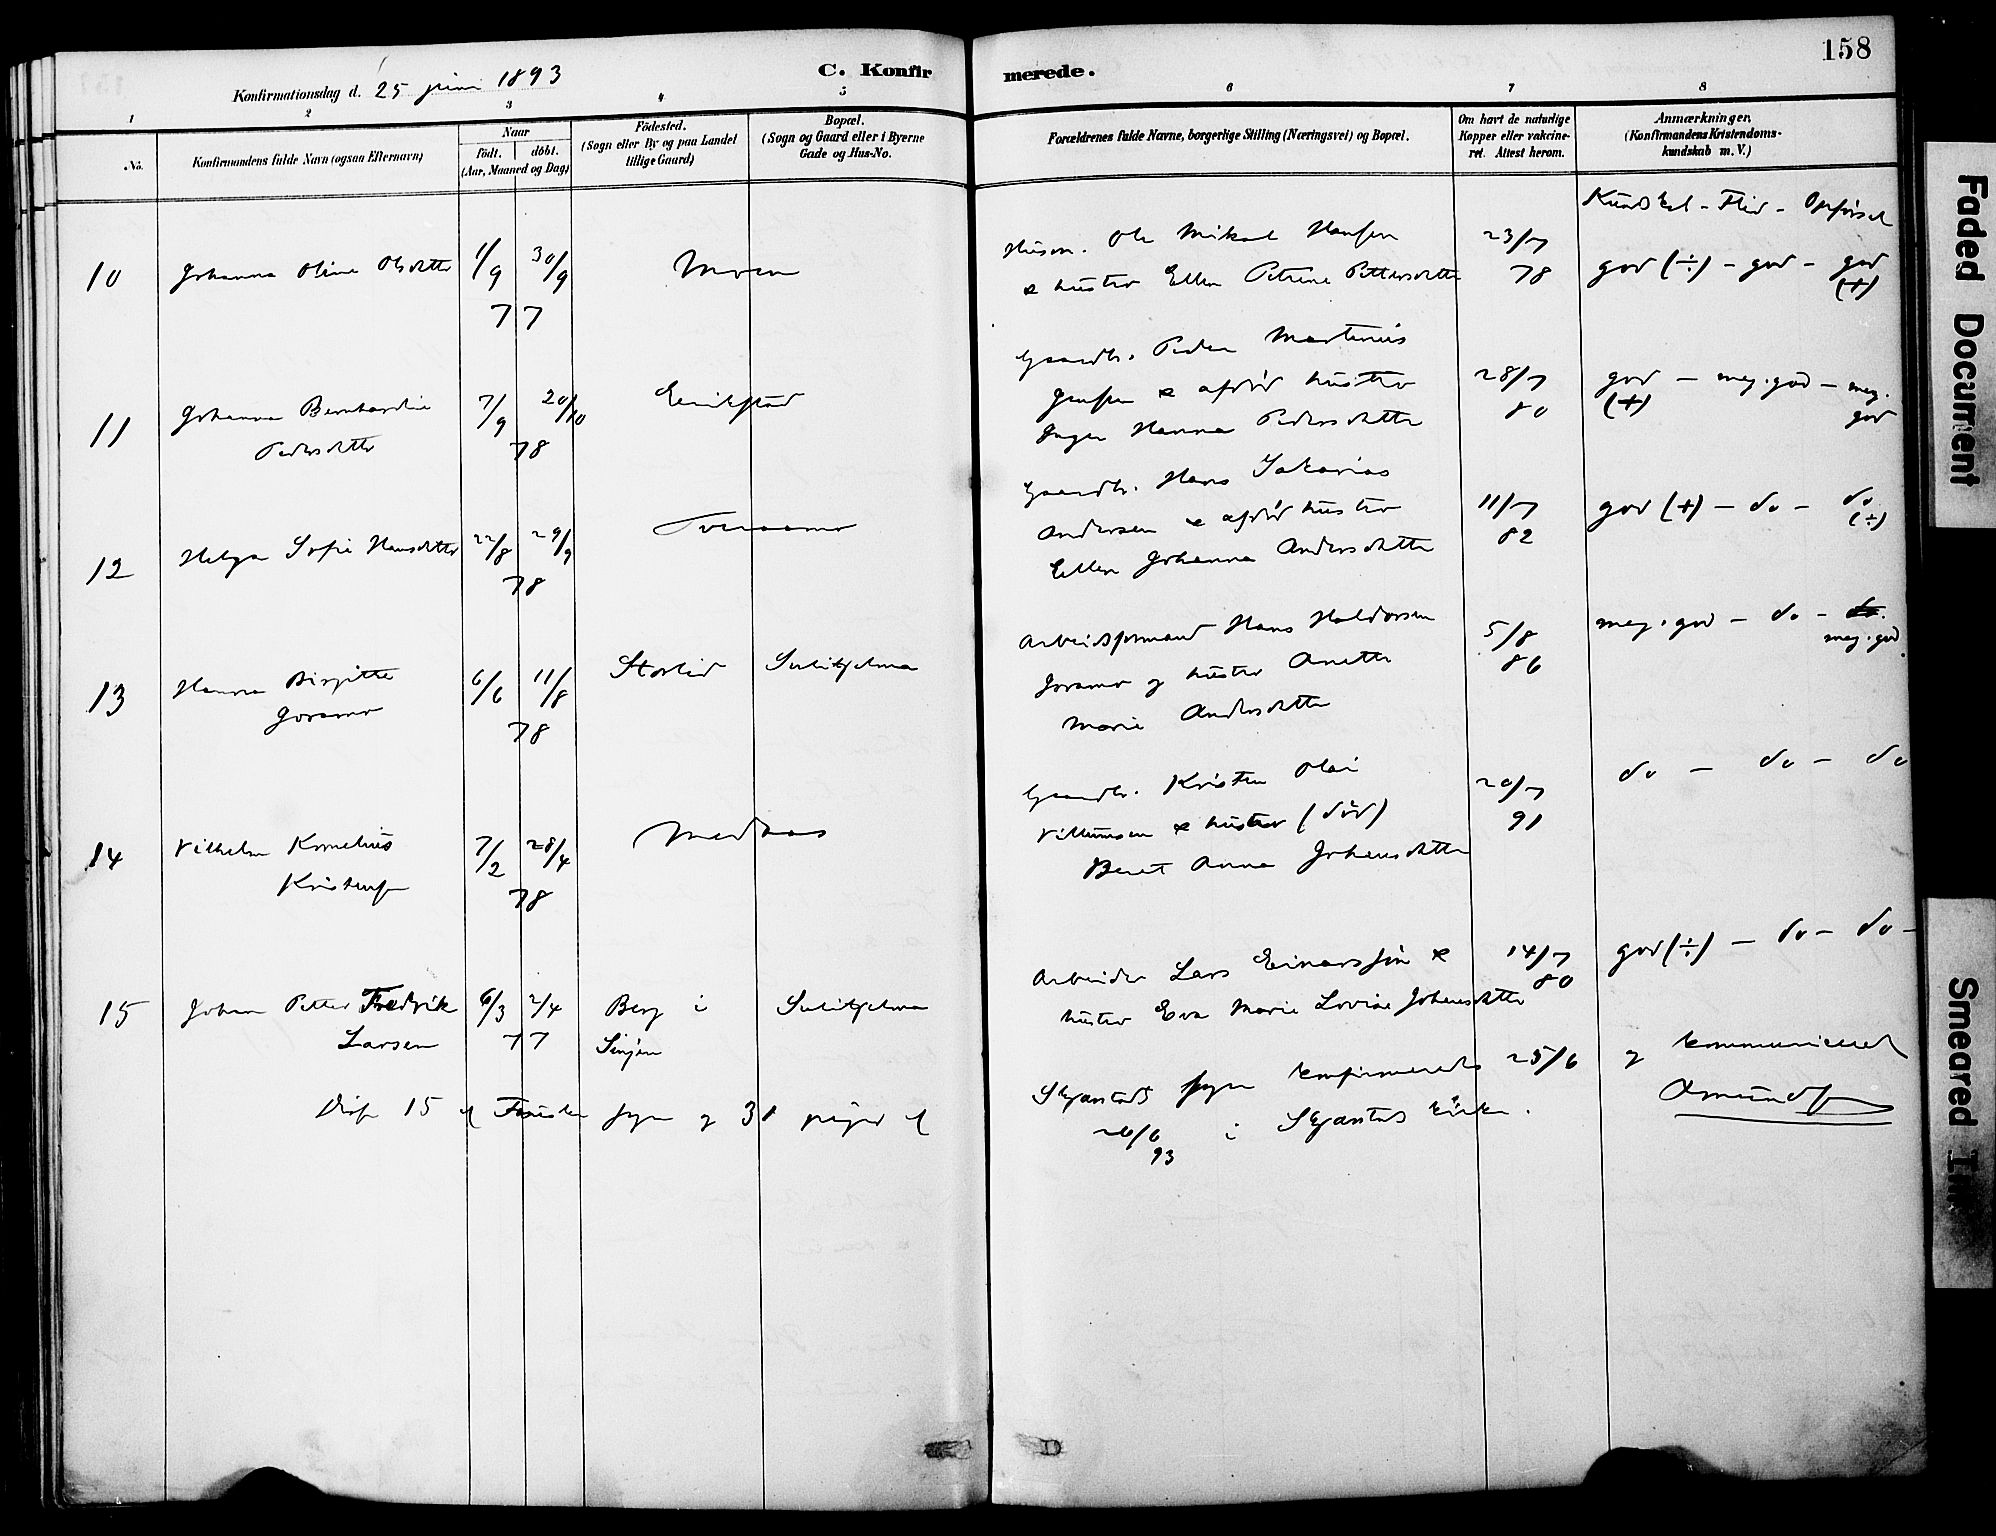 158
Konfirmationsdag d. 25 juni 1893
C. Konfirmerede.
1 2 3 4 5 6 7 8
No.
Konfirmandens fulde Navn (ogsaa Efternavn)
Naar
födt. döbt.
(Aar, Maaned og Dag)
Födested.
(Sogn eller By og paa Landet tillige Gaard)
Bopæl.
(Sogn og Gaard eller i Byerne Gade og Hus-No.
Forældrenes fulde Navne, borgerlige Stilling (Næringsvei) og Bopæl.
Om havt de naturlige Kopper eller vakcineret. Attest herom.
Anmærkninger.
(Konfirmandens Kristendomskundskab m. V.)
Kundskab - Flid - Opførsel
10 Johanna Oline Olsdatter 1/9 30/9 77 Moen
Husm. Ole Mikal Hansen
& hustro Ellen Petrine Pettersdatter
23/7 78
god (÷) - god - god (+)
11 Johanna Bernhardine
Pedersdatter
7/9 20/10 78
Erikstad
Gaardbr. Peder Martinus
Jensen & afdød hustro
Inger Hanna Pedersdatter
28/7 80
god (+) - meg. god - meg. god
12 Helga Sofie Hansdatter 22/8 29/9 78 Tveraamo
Gaardbr. Hans Sakarias
Andersen & afdød hustro
Ellen Johanna Andersdatter
11/7 82
god (+) - do - do (÷)
13 Hanna Birgitte
Joramo
6/6 11/8 78
Storlid Sulitjelma
Arbeidsformand Hans Haldorsen
Joramo og hustro Anette
Marie Andersdatter
5/8 86
meg. god - do - do.
meg. god
14 Vilhelm Kornelius
Kristensen
7/2 28/4 78
Medaas
Gaardbr. Kristen Olai
Villumsen & hustro (død)
Beret Anna Johansdatter
20/7 91
do - do - do
15 Johan Petter Fredrik
Larsen
6/3 2/4 77
Berg i
Sinjen
Sulitjelma
Arbeider Lars Einarssøn &
hustro Eva Marie Lovise Johansdatter
14/7 80
god (÷) - do - do -
Disse 15 af Fauske sogn og 31 piger af
Skjerstads sogn konfirmeredes 25/6 og kommunicerede
26/6 93 i Skjerstad kirke.
Amundsen
Faded Document
Smeared Ink